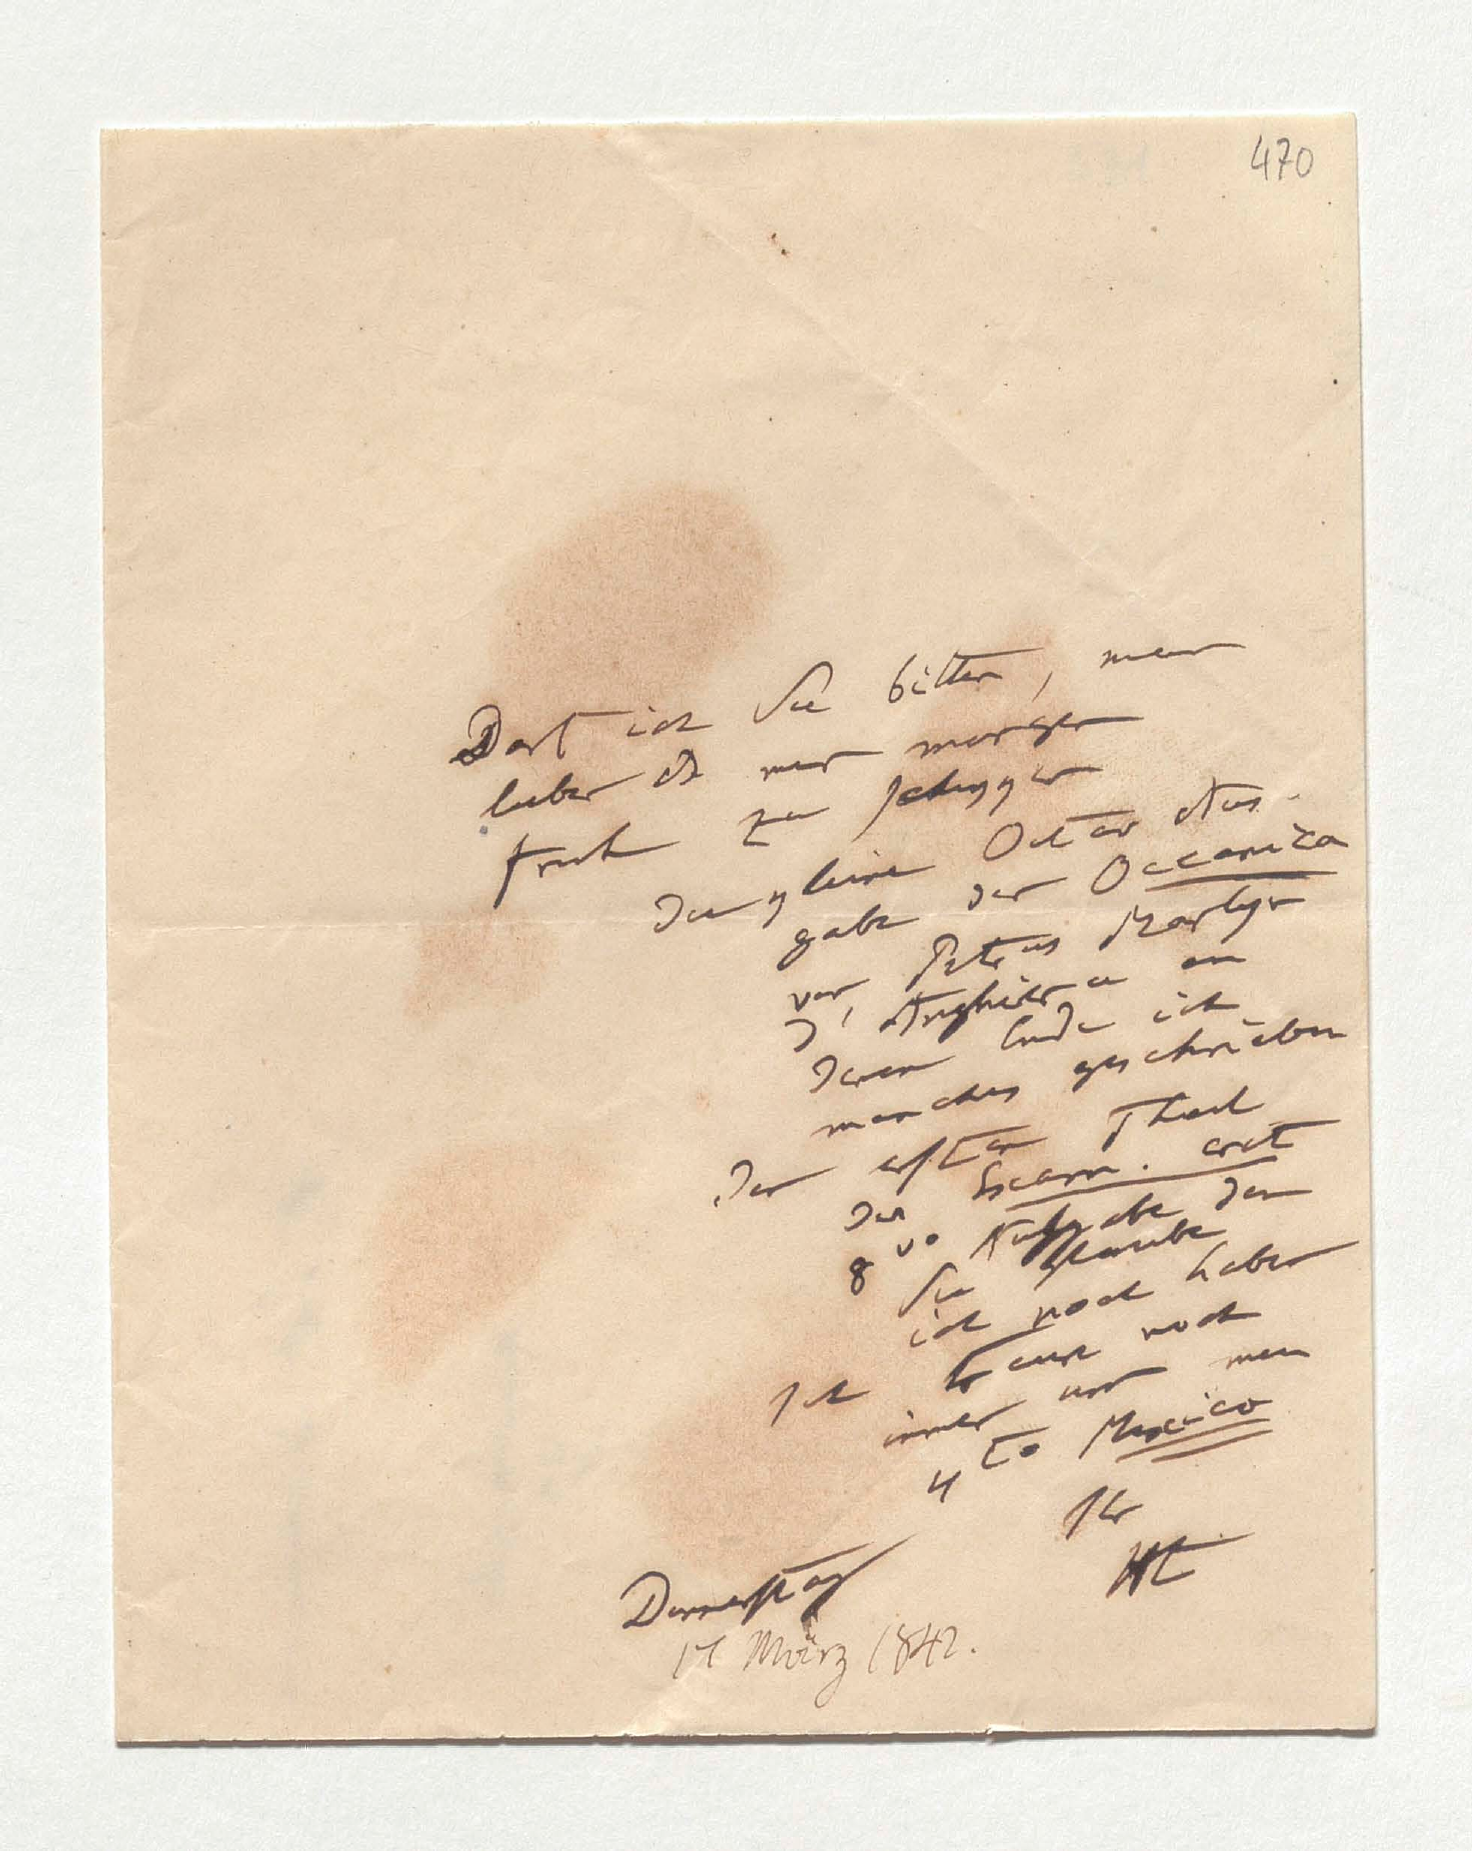 470
Darf ich Sie bitten, mein
lieber B mir morgen
früh zu schicken
die kleine Octav Aus-
gabe der Oceanica
von Petrus Martyr
d'Anghiera an
deren Ende ich
manches geschrieben
den ersten Theil
des Exam. crit
8vo Ausgabe den
Sie glaube
ich noch haben
Ich brauche noch
immer nur mein
4to Mexico
Ihr
Ht
Donnerstag
17 März 1842.